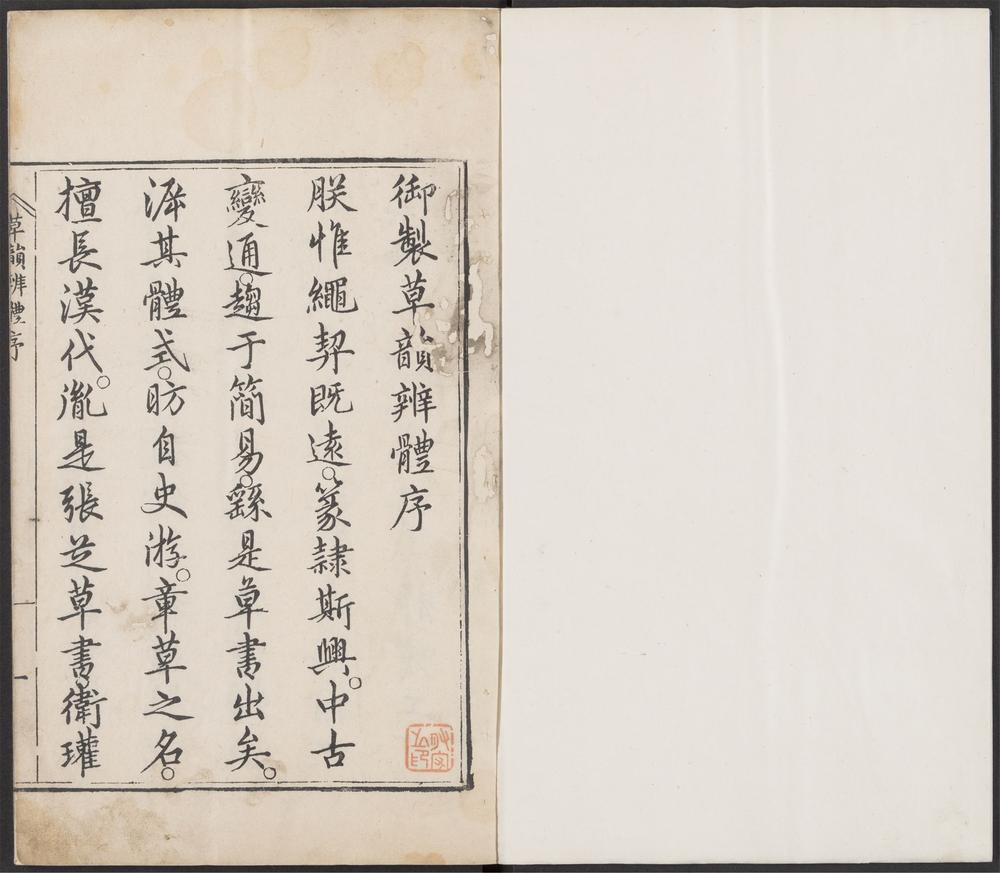 御製草韻辨體序
朕惟繩契既遠。篆隸斯興。中古
變通。趨于簡易。繇是草書出矣。
泝其體式。昉自史游。章草之名。
擅長漢代。胤是張芝草書。衛瓘
草韻辨體序
一